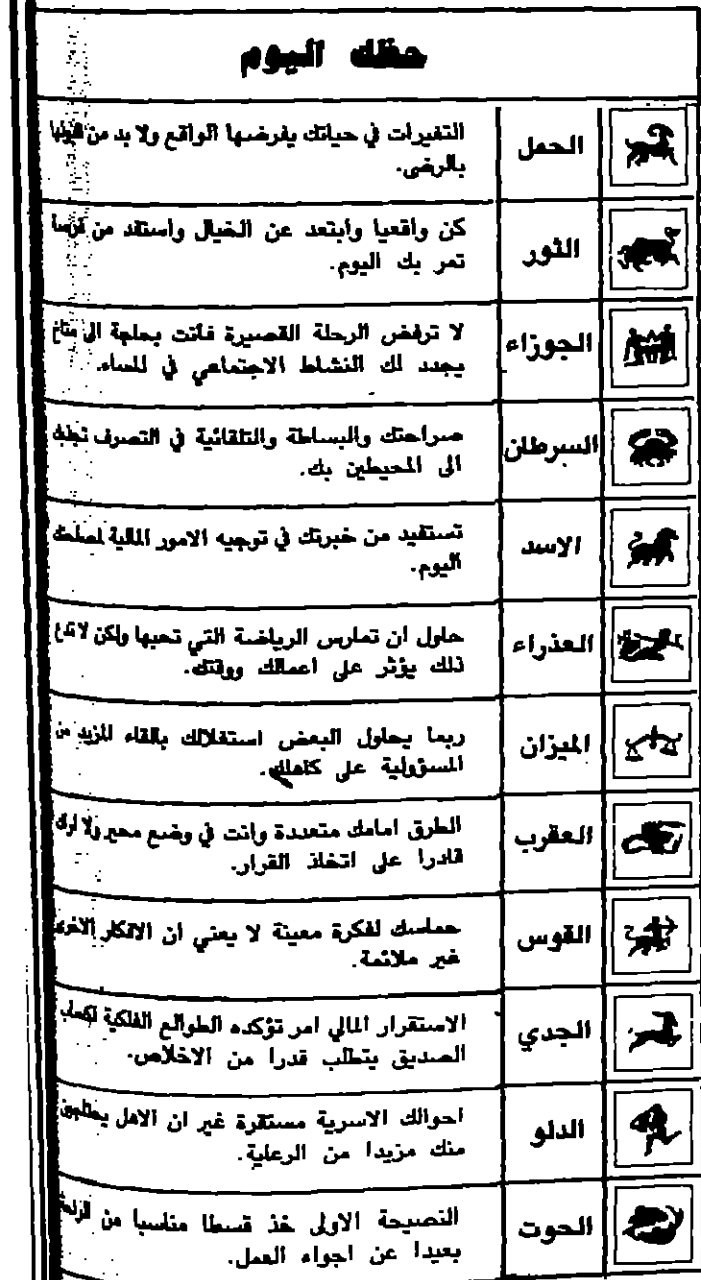 حظك اليوم
الحمل
التغيرات في حياتك يفرضها الواقع ولا بد من قبولها
بالرضى.
الثور
كن واقعيا وابتعد عن الخيال واستفد من فرصة
تمر بك اليوم.
الجوزاء
لا ترفض الرحلة القصيرة فانت بحاجة الى مناخ
يجدد لك النشاط الاجتماعي في المساء.
السرطان
صراحتك والبساطة والتلقائية في التصرف تجذبك
الى المحيطين بك.
الاسد
تستفيد من خبرتك في توجيه الامور المالية لمصلحتك
اليوم.
العذراء
حاول ان تمارس الرياضة التي تحبها ولكن لا تدع
ذلك يؤثر على اعمالك ووقتك.
الميزان
ربما يحاول البعض استغلالك بالقاء المزيد من
المسؤولية على كاهلك.
العقرب
الطرق امامك متعددة وانت في وضع محير ولا اراك
قادرا على اتخاذ القرار.
القوس
حماسك لفكرة معينة لا يعني ان الافكار الاخرى
غير ملائمة.
الجدي
الاستقرار المالي امر تؤكده الطوالع الفلكية لكسب
الصديق يتطلب قدرا من الاخلاص.
الدلو
احوالك الاسرية مستقرة غير ان الاهل يحتاجون
منك مزيدا من الرعاية.
الحوت
النصيحة الاولى خذ قسطا مناسبا من الراحة
بعيدا عن اجواء العمل.